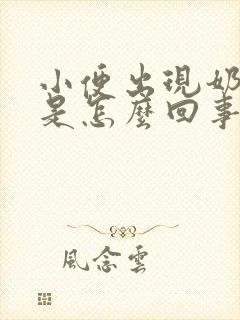 小便出現奶
是怎麼回事
風念雲